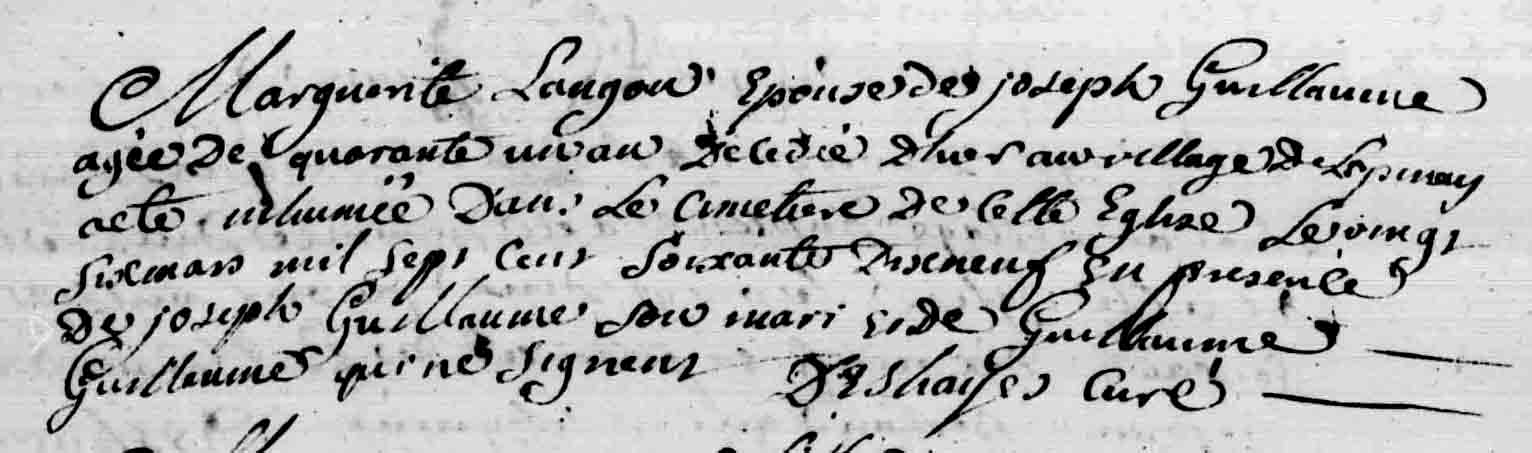 Marguerite Langou Epouse de joseph Guillaume
agée De quarante un an Décedée d'hier au village de Lepinay
a eté inhumée Dans Le Cimetiere de Cette Eglise Le vingt
six mars mil sept cent soixante Dix neuf En presence
De joseph Guillaume son mari et de Guillaume
Guillaume qui ne signent Deshayes Curé